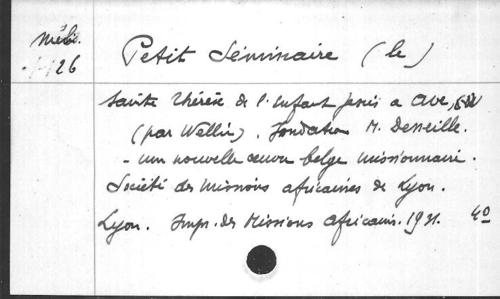 Mélo.
26
Petit Séminaire (le)
Sainte Thérèse de l'Enfant Jésus à Ave,
(par Wellin). Fondation M. Desseille.
- une nouvelle œuvre belge missionnaire.
Société des Missions africaines de Lyon.
Lyon. Impr. des Missions africain. 1931. 4o